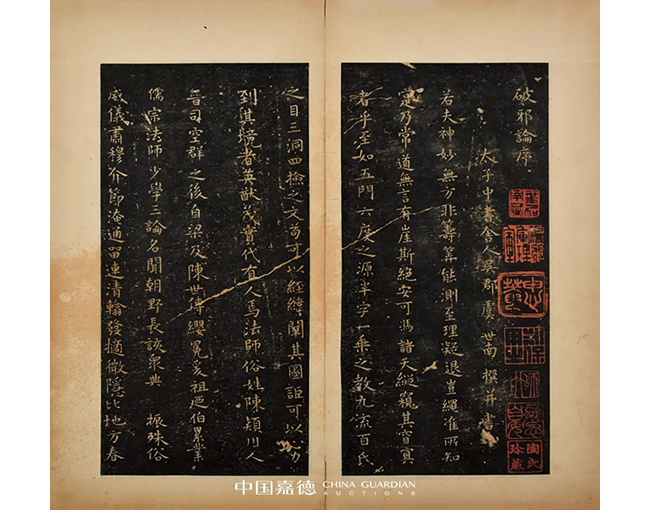 破邪論序
太子中書舍人吳郡虞世南撰并書
若夫神妙無方非籌算能測至理凝邈豈繩准所知
定乃常道無言有崖斯絕安可馮諸天縱窺其窅冥
者乎至如五門六度之源半字一乘之教九流百氏
之目三洞四檢之文苟可以經緯闡其圖詎可以心力
到其境者英猷茂實代有人焉法師俗姓陳潁川人
晉司空群之後自梁及陳世傳纓冕爰祖迺伯累業
儒宗法師少學三論名聞朝野長該眾典 振殊俗
威儀肅穆介節淹通留連清翰發擿微隱比地方春
陶氏珍藏
中国嘉德 CHINA GUARDIAN
AUCTIONS